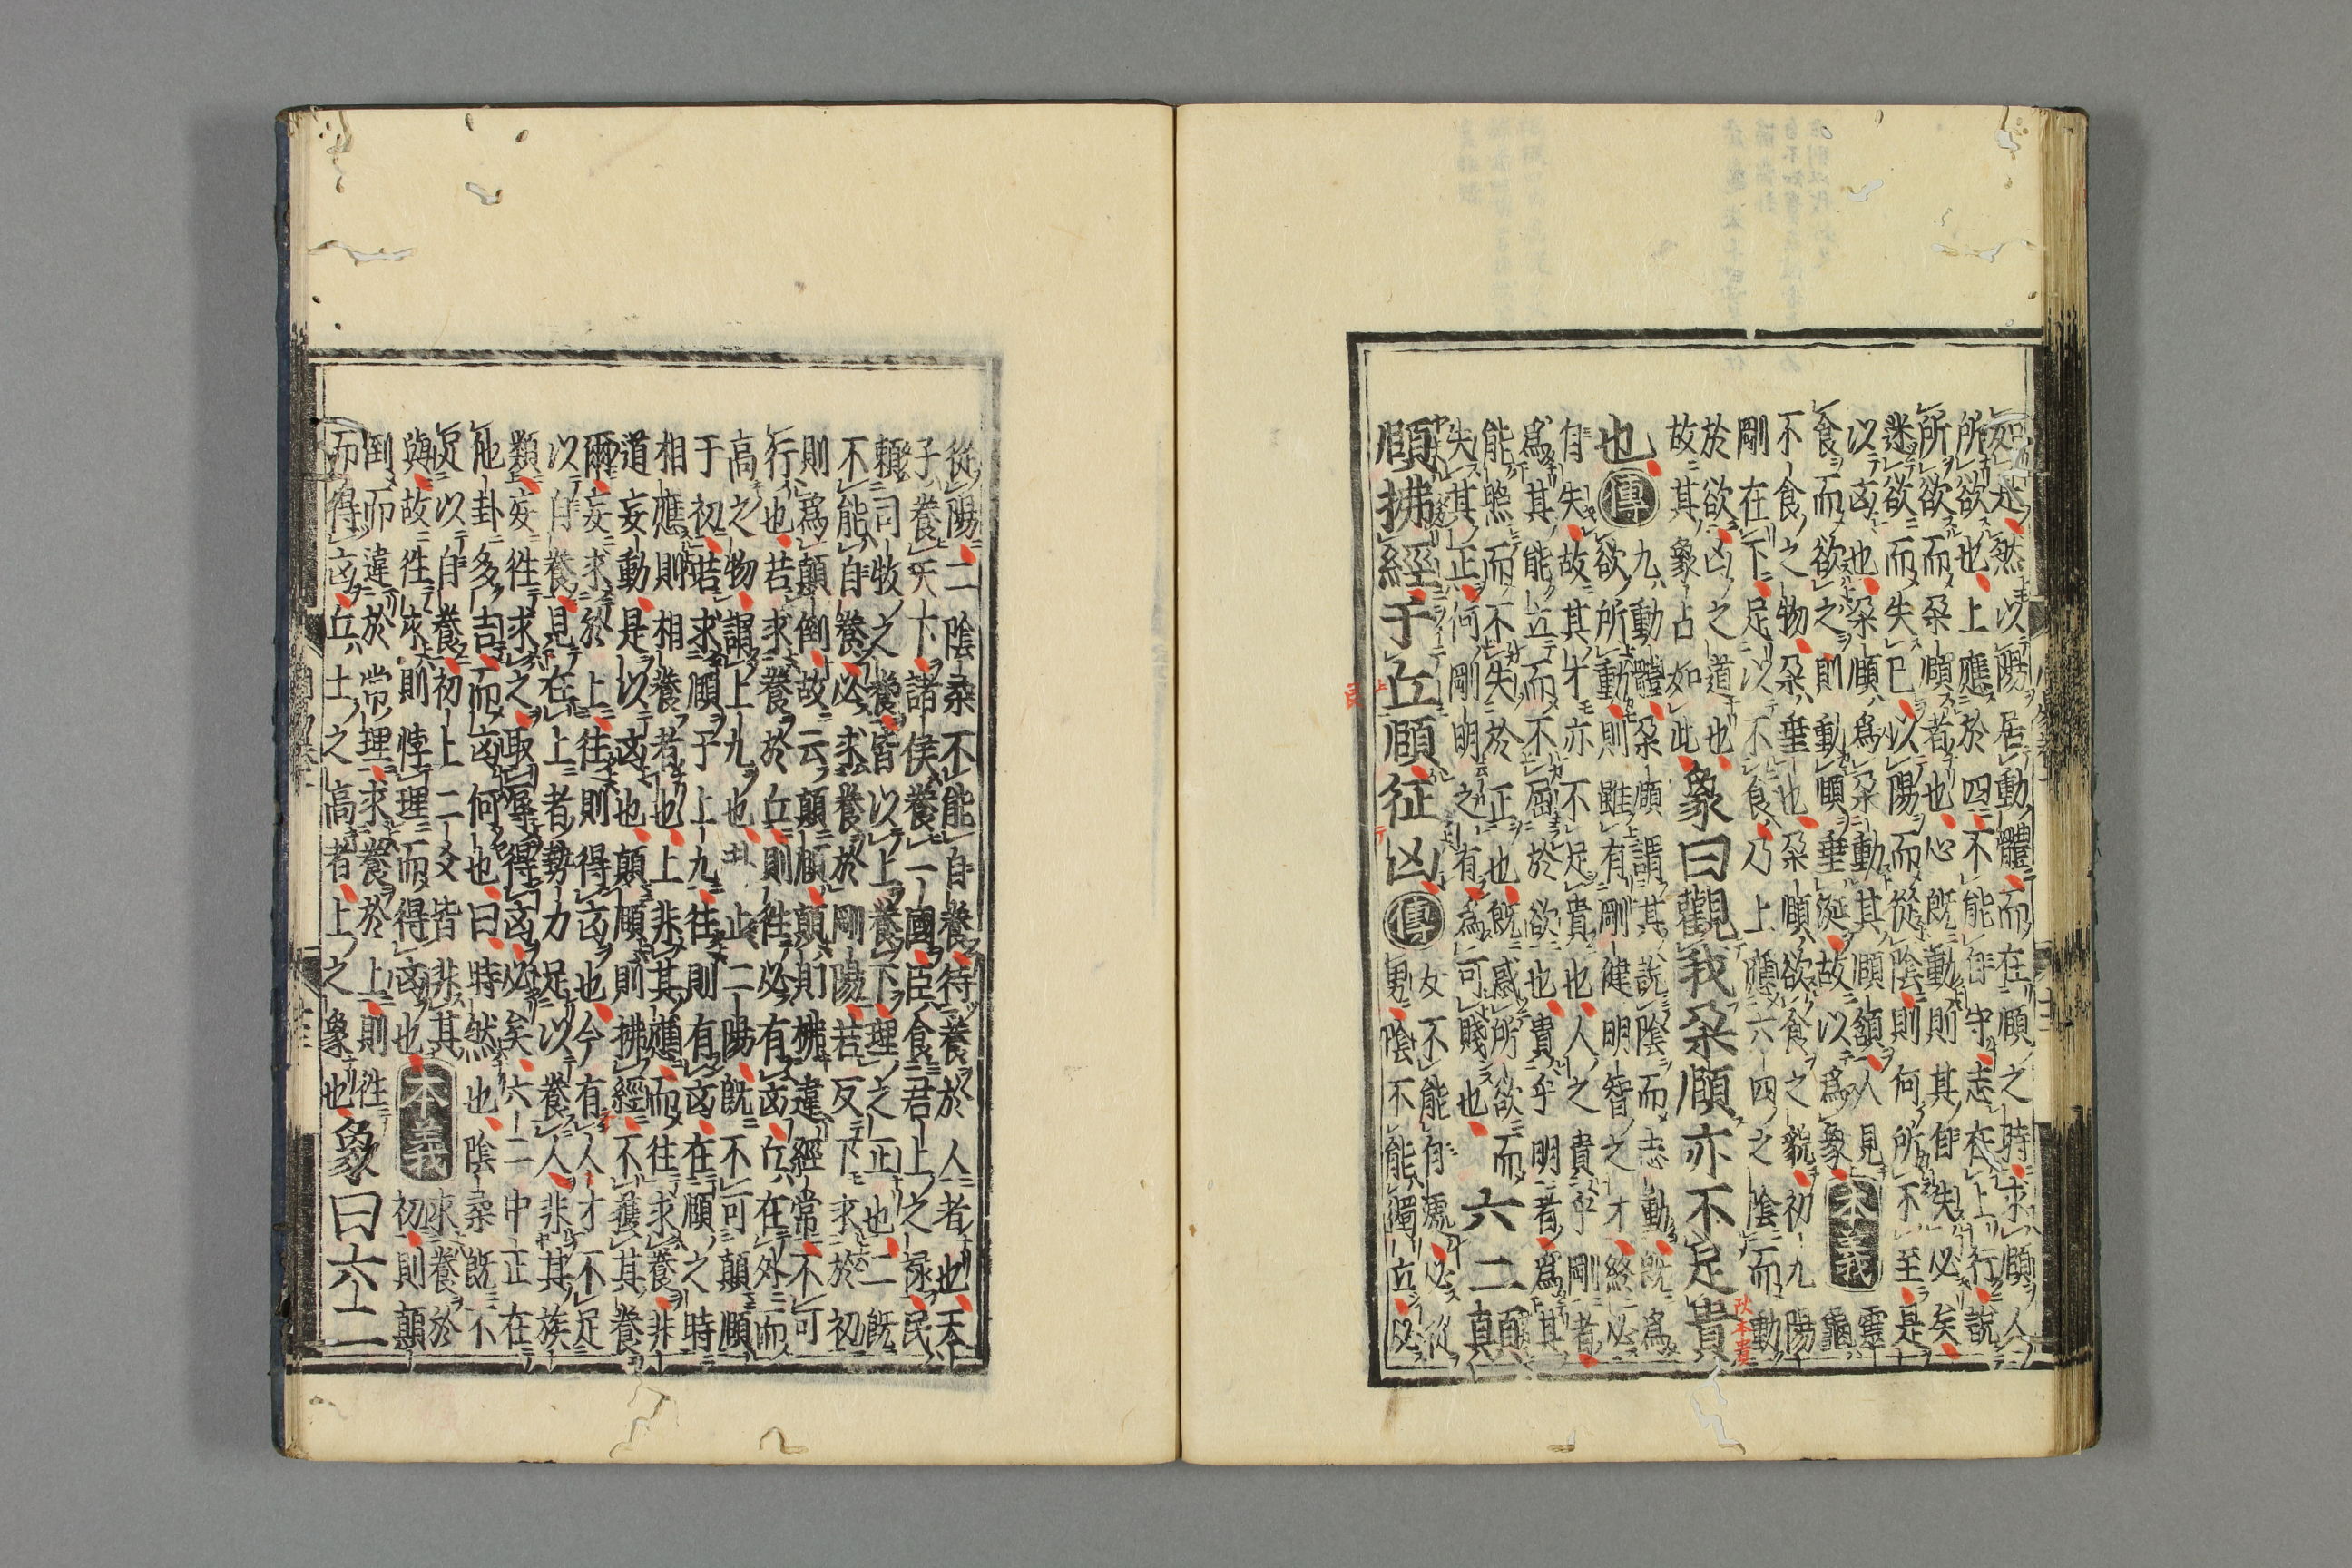 妄也然以陽居動體而在頤之時求頤人
所欲也上應於四不能自守志在上行說
所欲而朶頤者也心既動則其自失必矣
迷欲而失已以陽而從陰則何所不至是
以凶也朶頤爲朶動其頤頷人見
食而欲之則動頤垂涎故以爲象
本義
靈
龜
不食之物朶垂也朶頤欲食之貌初九陽
剛在下足以不食乃上應六四之陰而動
於欲凶之道也
故其象占如此
象曰觀我朶頤亦不足貴
也
傳
九動體朶頤謂其說陰而志動既爲
欲所動則雖有剛健明智之才終必
自失故其才亦不足貴也人之貴乎剛者
爲其能立而不屈於欲也貴乎明者爲其
能照而不失於正也既惑所欲而
失其正何剛明之有爲可賤也
六二顛
頤拂經于丘頤征凶
傳
女不能自處必從
男陰不能獨立必
從陽二陰柔不能自養待養於人者也天
子養天下諸侯養一國臣食君上之祿民
賴司牧之養皆以上養下理之正也二既
不能自養必求養於剛陽若反下求於初
則爲顛倒故云顛頤顛則拂違經常不可
行也若求養於丘則往必有凶丘在外而
高之物謂上九也卦止二陽既不可顛頤
于初若求頤于上九往則有凶在頤之時
相應則相養者也上非其應而往求養非
道妄動是以凶也顛頤則拂經不獲其養
爾妄求於上往則得凶也今有人才不足
以自養見在上者勢力足以養人非其族
類妄往求之取辱得凶必矣六二中正在
他卦多吉而凶何也曰時然也陰柔既不
足以自養初上二爻皆非其
與故往求則悖理而得凶也
本義
求養於
初則顛
倒而違於常理求養於上則往
而得凶丘土之高者上之象也
象曰六二